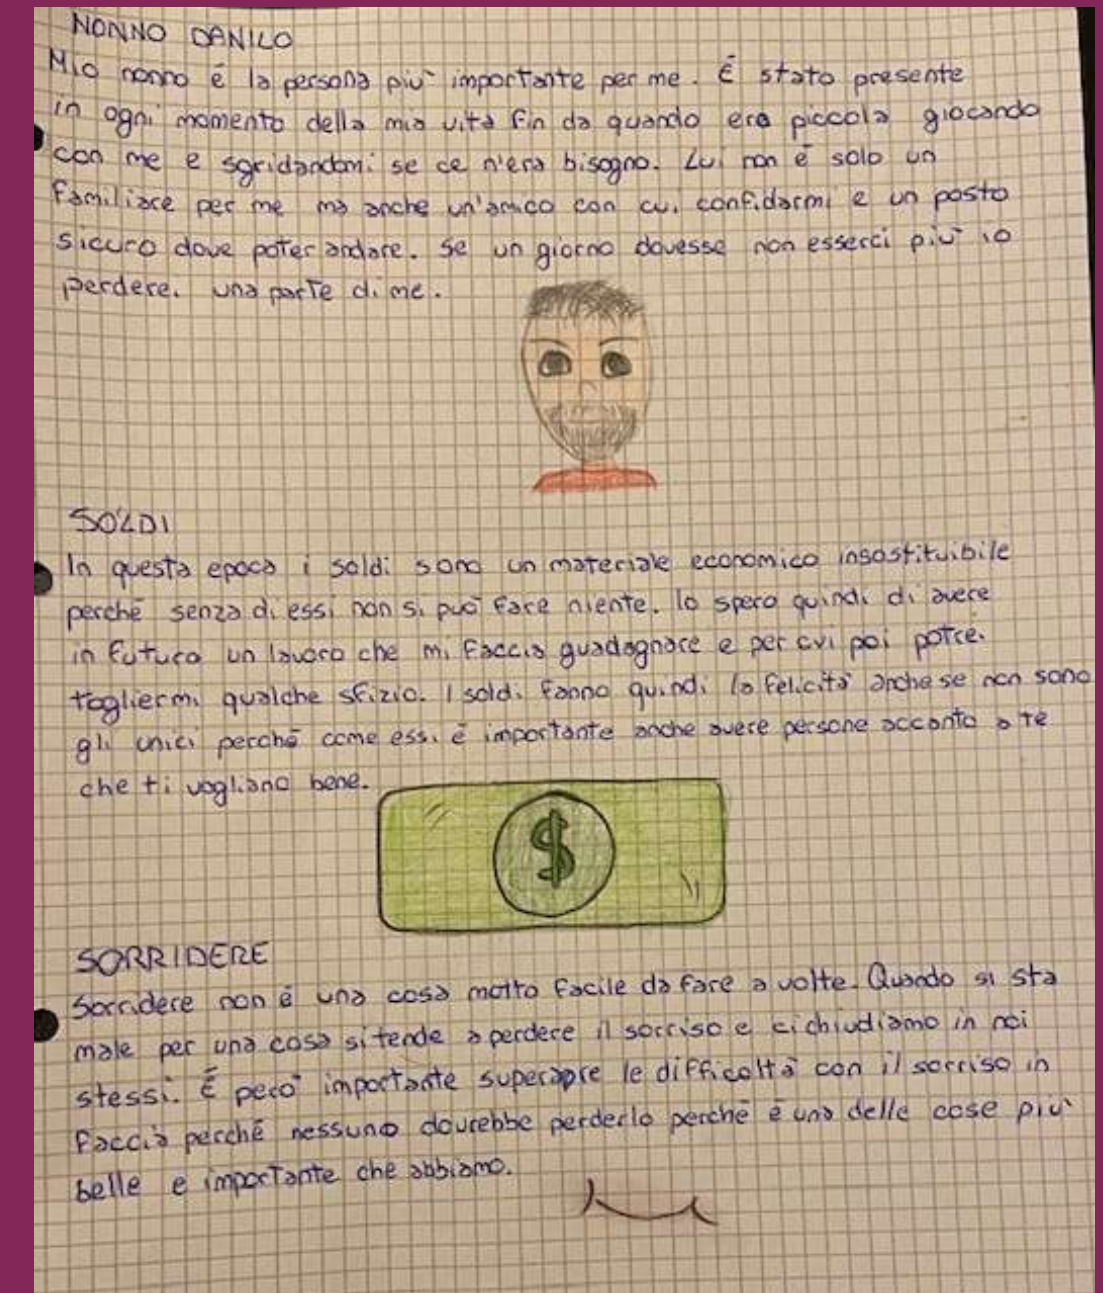 NONNO DANILO
Mio nonno é la persona più importante per me. É stato presente
in ogni momento della mia vita fin da quando ero piccola giocando
con me e sgridandomi se ce n'era bisogno. Lui non é solo un
familiare per me ma anche un'amico con cui confidarmi e un posto
sicuro dove poter andare. Se un giorno dovesse non esserci più io
perderei una parte di me.
SOLDI
In questa epoca i soldi sono un materiale economico insostituibile
perché senza di essi non si può fare niente. Io spero quindi di avere
in futuro un lavoro che mi faccia guadagnare e per cui poi potrei
togliermi qualche sfizio. I soldi fanno quindi la felicità anche se non sono
gli unici perché come essi é importante anche avere persone accanto a te
che ti vogliano bene.
$
SORRIDERE
Sorridere non é una cosa molto facile da fare a volte. Quando si sta
male per una cosa si tende a perdere il sorriso e ci chiudiamo in noi
stessi. É però importante superare le difficoltà con il sorriso in
faccia perché nessuno dovrebbe perderlo perché é una delle cose più
belle e importante che abbiamo.